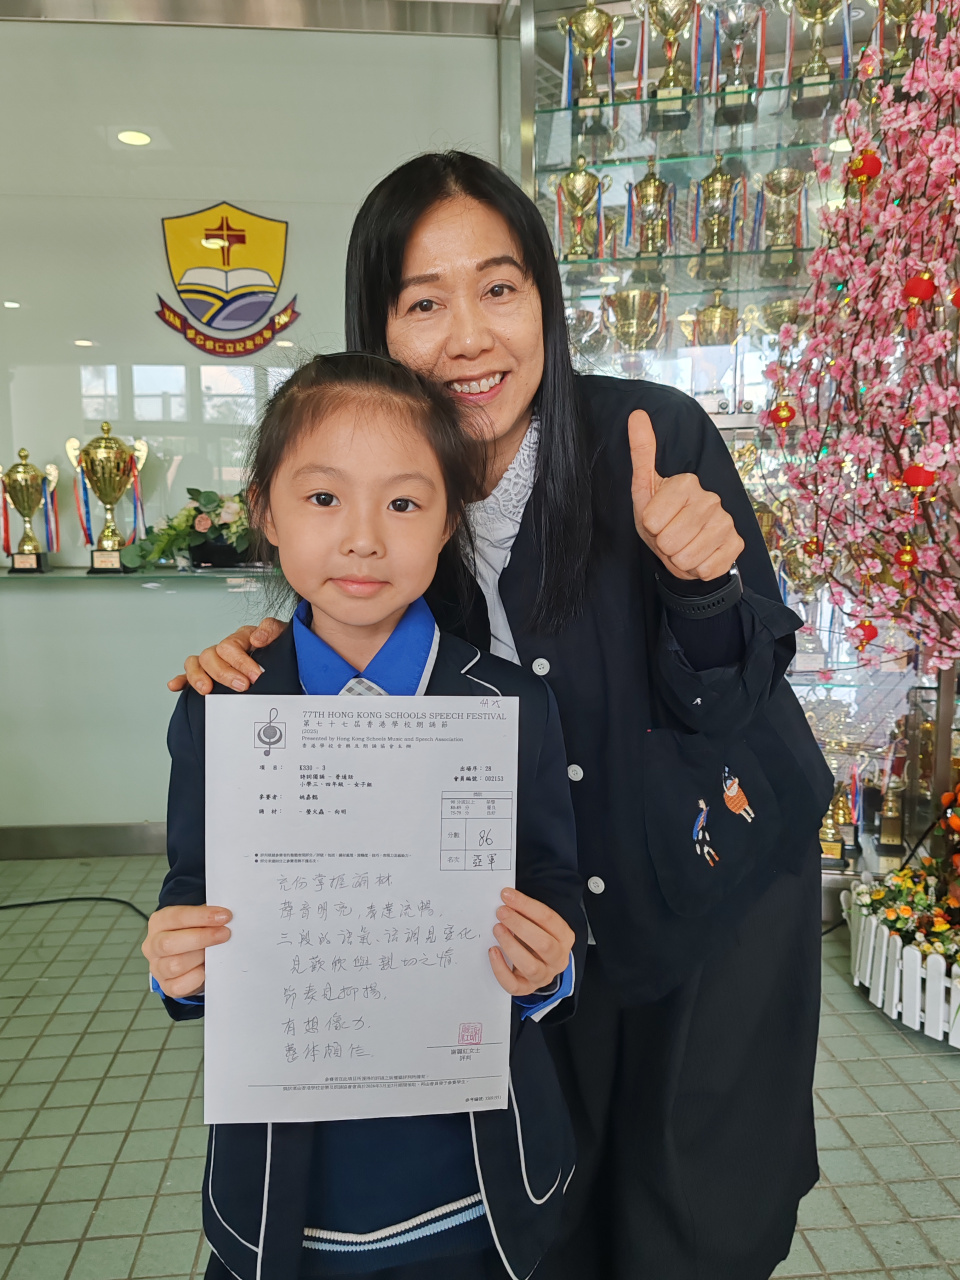 4A 25
77TH HONG KONG SCHOOLS SPEECH FESTIVAL
第七十七屆香港學校朗誦節
(2025)
Presented by Hong Kong Schools Music and Speech Association
香港學校音樂及朗誦協會主辦
項目： K330 - 3
出場序：28
詩詞獨誦 - 普通話
會員編號：002153
小學三、四年級 - 女子組
參賽者：
誦材： - 螢火蟲 - 向明
分數 86
名次 亞軍
充份掌握誦材
聲音明亮，表達流暢.
三段的語氣、語調見變化,
見歡欣與親切之情.
節奏見抑揚.
有想像力.
整体頗佳.
評判